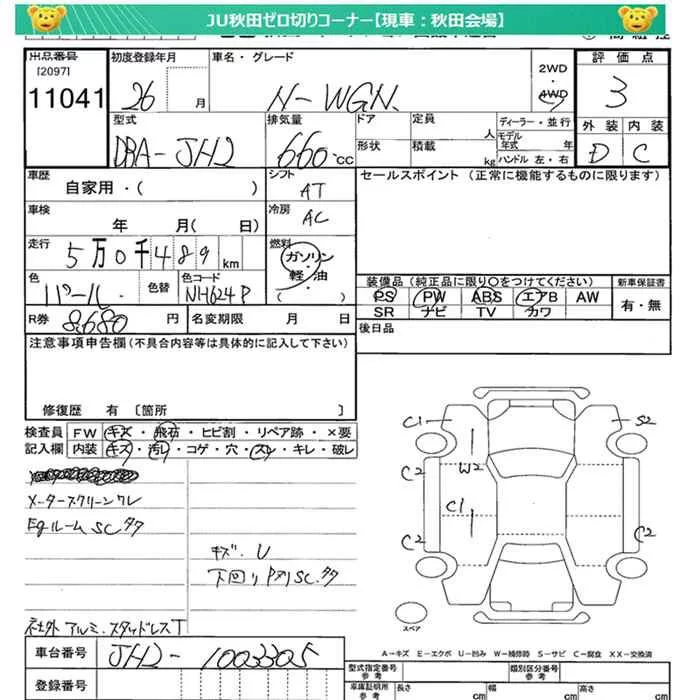 JU秋田ゼロ切りコーナー【現車：秋田会場】
出品番号 初度登録年月 車名・グレード 2WD・4WD 評価点
[2097]
11041 26 月 N-WGN 3
型式 排気量 ドア 定員 人 ディーラー・並行 外装 内装
DBA-JH2 660 CC 形状 積載 kg モデル年式 年 ハンドル 左・右 D C
車歴 シフト セールスポイント (正常に機能するものに限ります)
自家用・( ) AT
車検 年 月( 日) 冷房 AC
走行 5万0千489 km 燃料 ガソリン・軽・油・( )
色 パール 色替 色コード NH624P
装備品(純正品に限り○をつけてください) 新車保証書
PS PW ABS エアB AW 有・無
SR ナビ TV カワ
R券 8,680 円 名変期限 月 日 後日品
注意事項申告欄(不具合内容等は具体的に記入して下さい)
修復歴 有 〔箇所 〕
検査員 FW キズ・飛石・ヒビ割・リペア跡・×要
記入欄 内装 キズ・汚レ・コゲ・穴・スレ・キレ・破レ
メータースクリーンワレ
Egルーム SC タタ
キズ・U
下回り Pヌリ SC タタ
社外 アルミ・スタッドレスT
C1 S2
C2 W2
C1
C2 C2 C2
スペア
A-キズ E-エクボ U-凹み W-補修跡 S-サビ C-腐食 XX-交換済
車台番号 JH2-1003305
登録番号
型式指定番号 参考 類別区分番号 参考
車庫証明用 参考 長さ cm 幅 cm 高さ cm